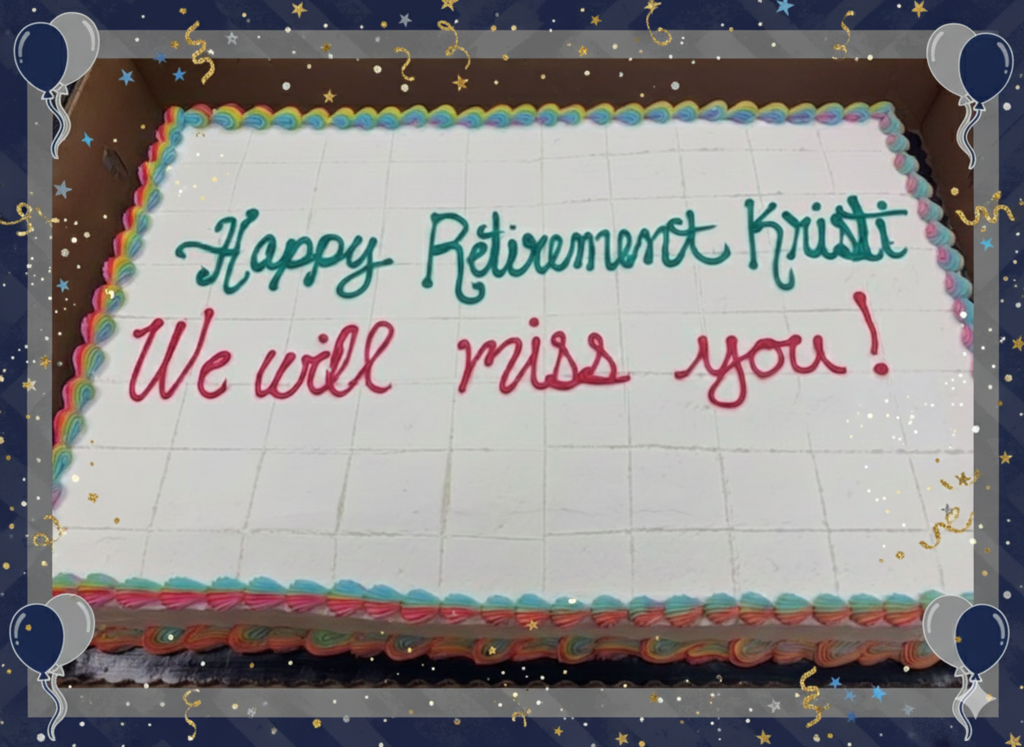 Happy Retirement Kristi
We will miss you!